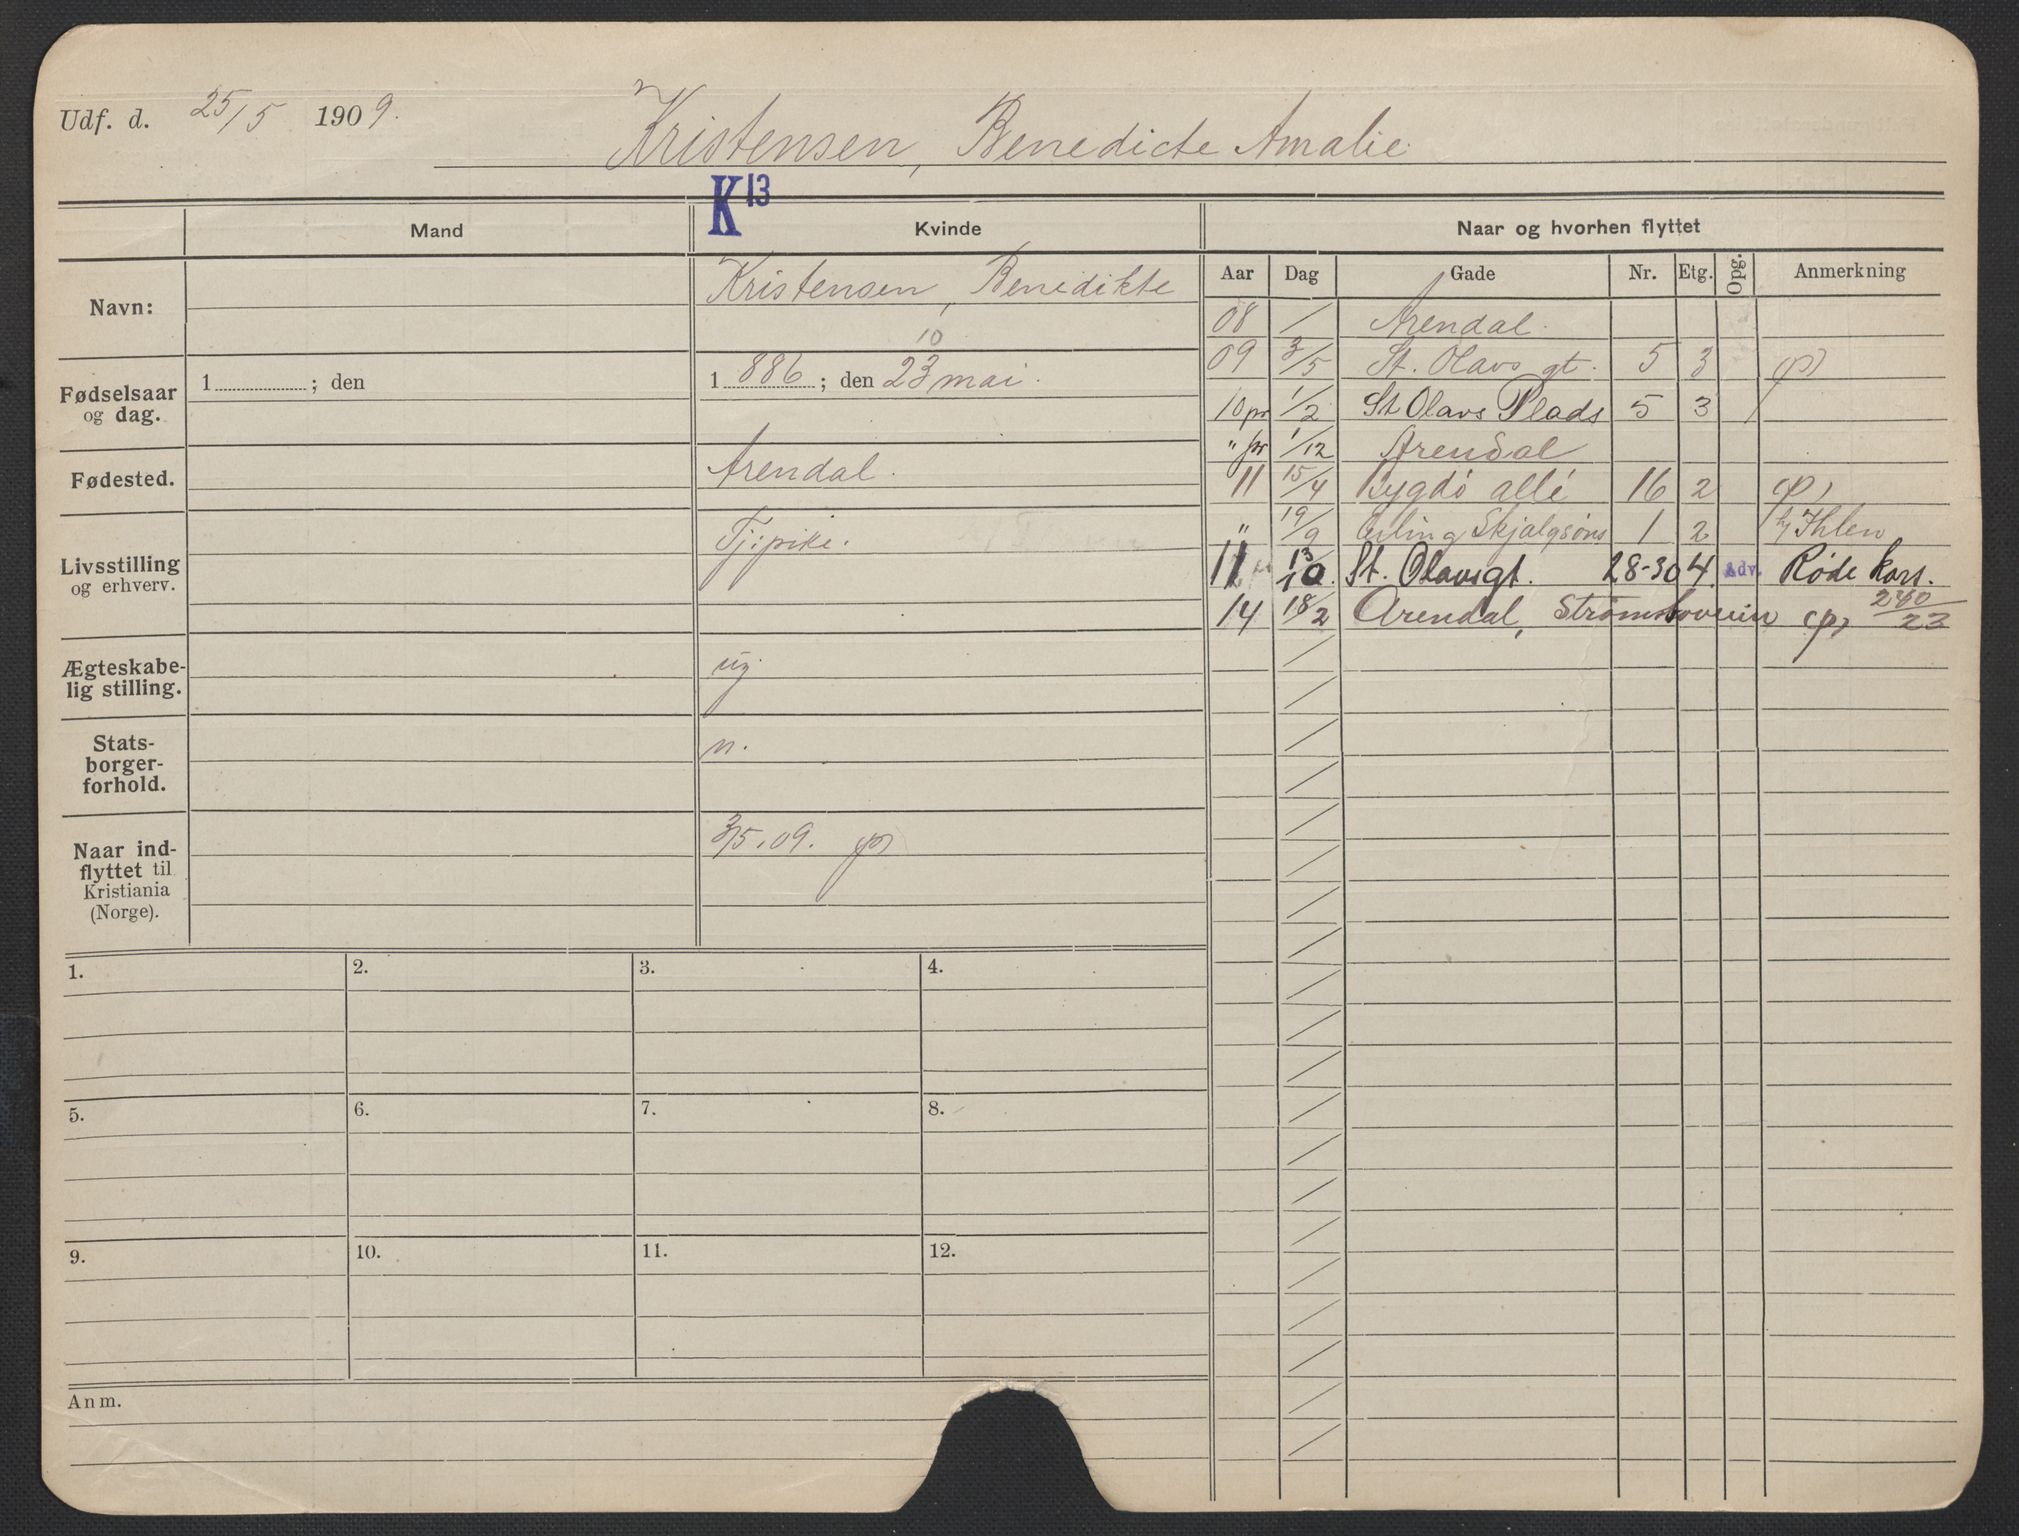 Udf. d. 25/5 1909.
Kristensen, Benedicte Amalie
K13
Mand
Kvinde
Naar og hvorhen flyttet
Aar Dag Gade Nr. Etg. Opg. Anmerkning
Navn:
Kristensen, Benedikte
10
Fødselsaar
og dag.
1 ; den
1 886 ; den 23 mai.
Fødested.
Arendal.
Livsstilling
og erhverv.
Tj:pike.
Ægteskabe-
lig stilling.
ug.
Stats-
borger-
forhold.
n.
Naar ind-
flyttet til
Kristiania
(Norge).
3/5.09. (p)
08 / Arendal.
09 3/5 St. Olavs gt. 5 3 (p)
10 pr 1/2 St Olavs Plads 5 3 /
" pr 1/12 Arendal
11 15/4 Bygdö allé 16 2 (p)
" 19/9 Erling Skjalgsöns 1 2 hj Ihlen
11 13/10. St. Olavsgt. 28-30 4. Adv. Røde kors.
14 18/2 Arendal, (p) 240/23
1.
2.
3.
4.
5.
6.
7.
8.
9.
10.
11.
12.
Anm.